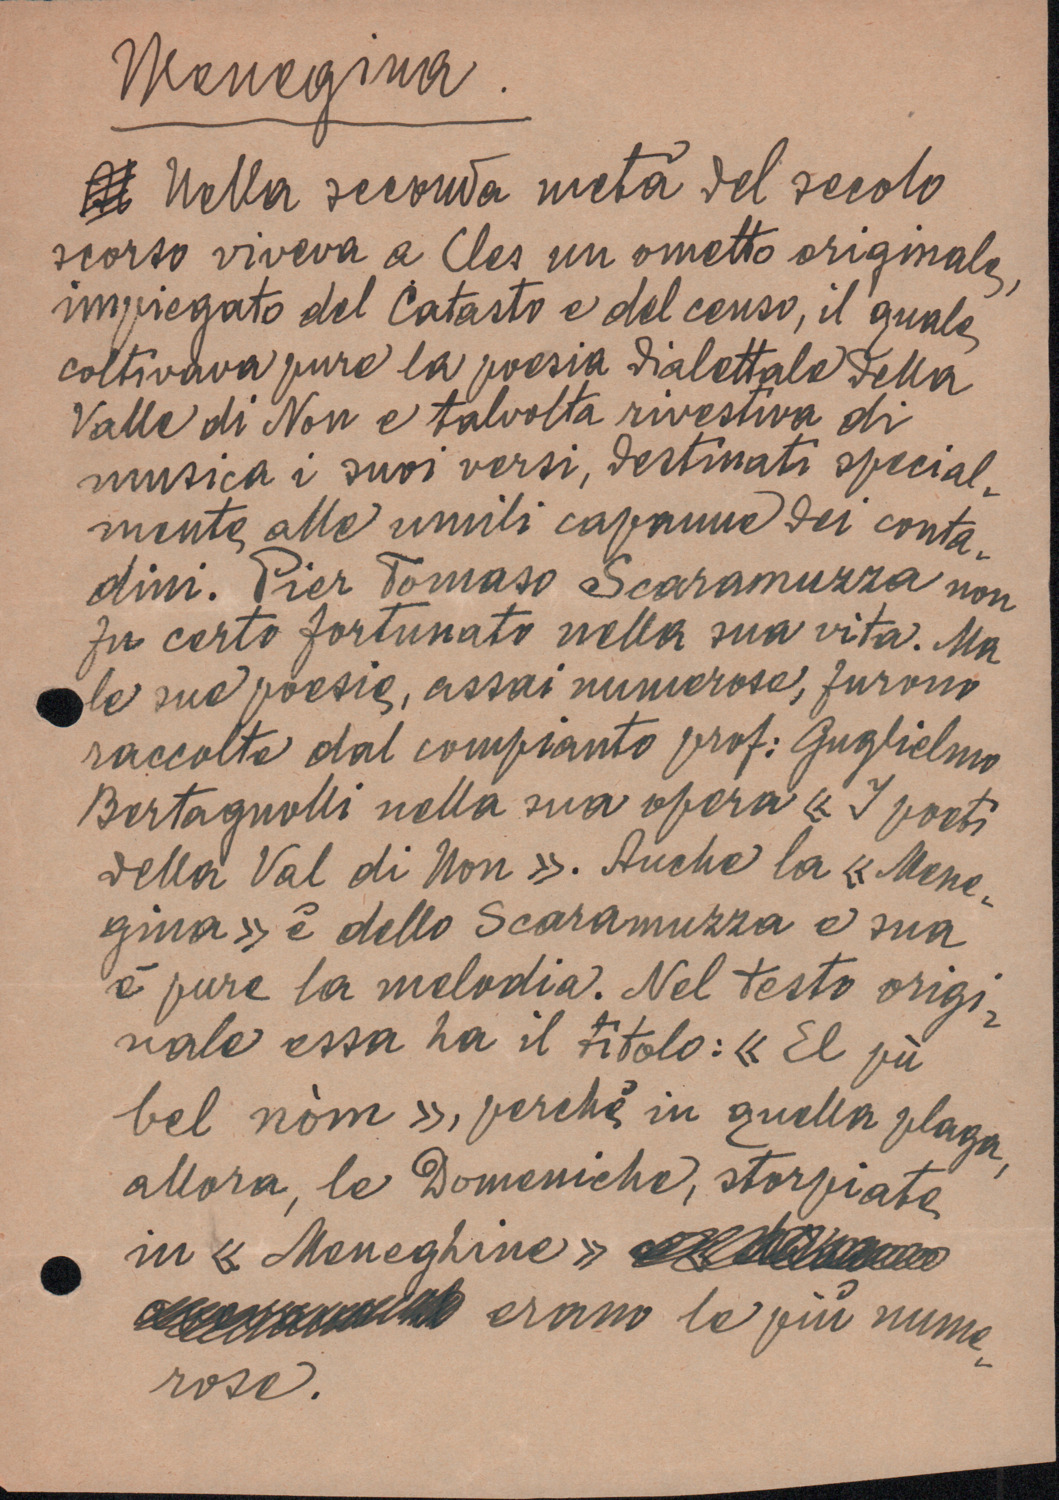 Menegina.
Nella seconda metà del secolo
scorso viveva a Cles un ometto originale,
impiegato del Catasto e del censo, il quale
coltivava pure la poesia dialettale della
Valle di Non e talvolta rivestiva di
musica i suoi versi, destinati special-
mente alle umili capanne dei conta-
dini. Pier Tomaso Scaramuzza non
fu certo fortunato nella sua vita. Ma
le sue poesie, assai numerose, furono
raccolte dal compianto prof: Guglielmo
Bertagnolli nella sua opera « I poeti
della Val di Non ». Anche la « Mene-
gina » è dello Scaramuzza e sua
è pure la melodia. Nel testo origi-
nale essa ha il titolo: « El pù
bel nòm », perchè in quella plaga,
allora, le Domeniche, storpiate
in « Meneghine »
erano le più nume-
rose.